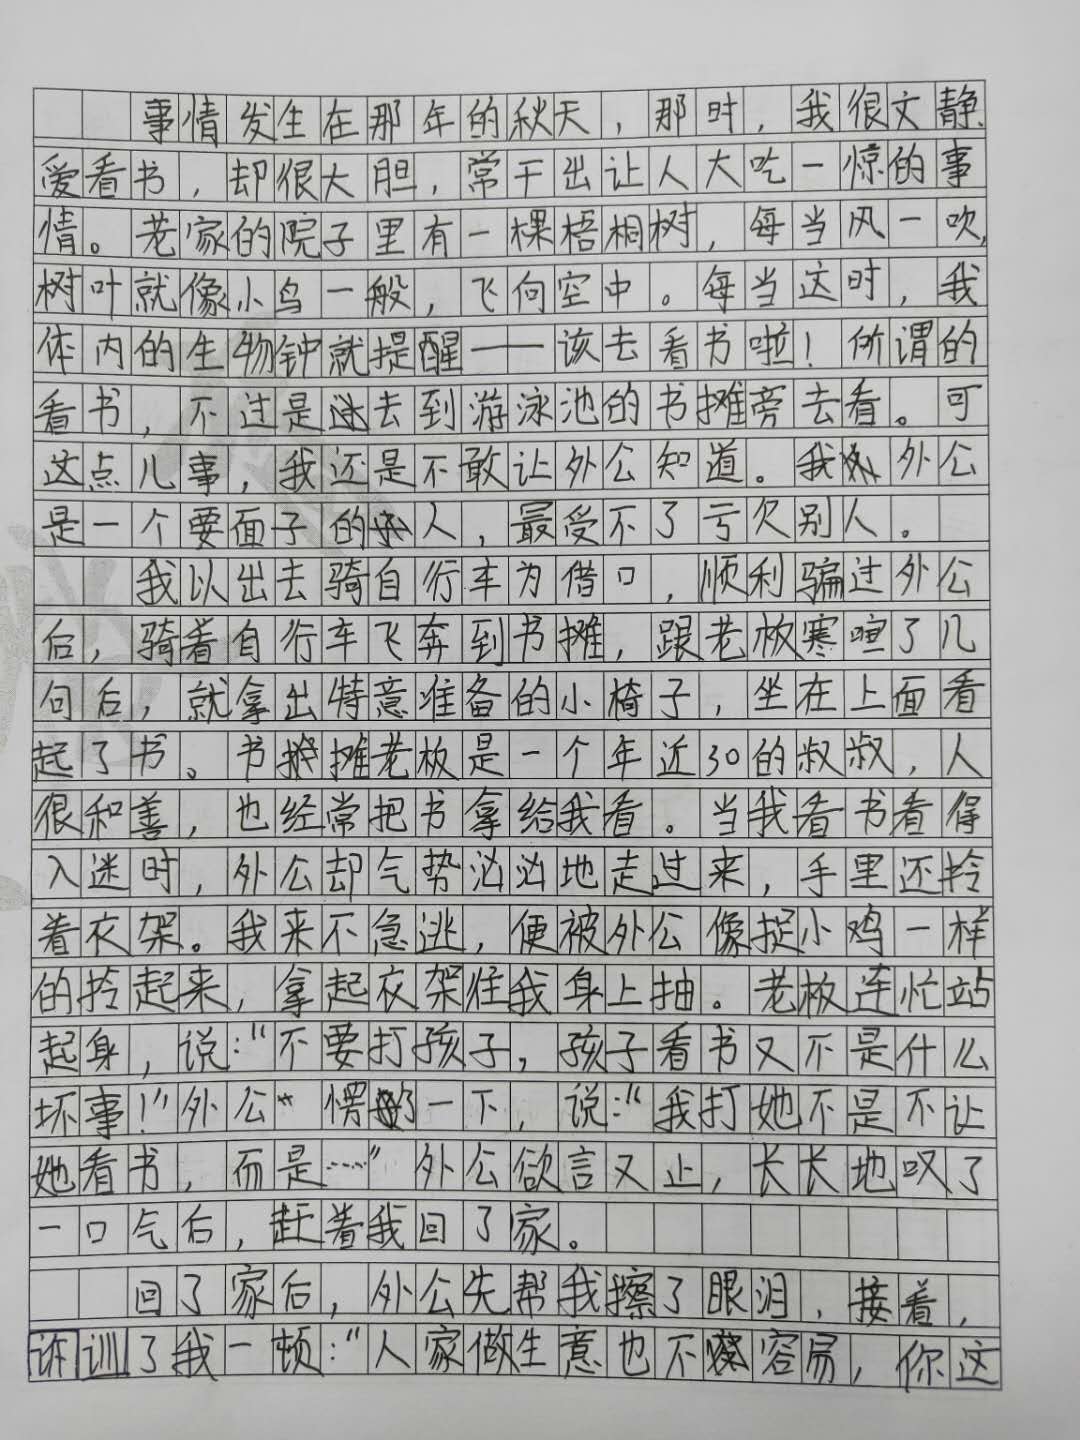 事情发生在那年的秋天，那时，我很文静、
爱看书，却很大胆，常干出让人大吃一惊的事
情。老家的院子里有一棵梧桐树，每当风一吹，
树叶就像小鸟一般，飞向空中。每当这时，我
体内的生物钟就提醒——该去看书啦！所谓的
看书，不过是去到游泳池的书摊旁去看。可
这点儿事，我还是不敢让外公知道。我外公
是一个要面子的人，最受不了亏欠别人。
我以出去骑自行车为借口，顺利骗过外公
后，骑着自行车飞奔到书摊，跟老板寒喧了几
句后，就拿出特意准备的小椅子，坐在上面看
起了书。书摊老板是一个年近30的叔叔，人
很和善，也经常把书拿给我看。当我看书看得
入迷时，外公却气势汹汹地走过来，手里还拎
着衣架。我来不急逃，便被外公像捉小鸡一样
的拎起来，拿起衣架往我身上抽。老板连忙站
起身，说：“不要打孩子，孩子看书又不是什么
坏事！”外公愣了一下，说：“我打她不是不让
她看书，而是……”外公欲言又止，长长地叹了
一口气后，赶着我回了家。
回了家后，外公先帮我擦了眼泪，接着，
训了我一顿：“人家做生意也不容易，你这